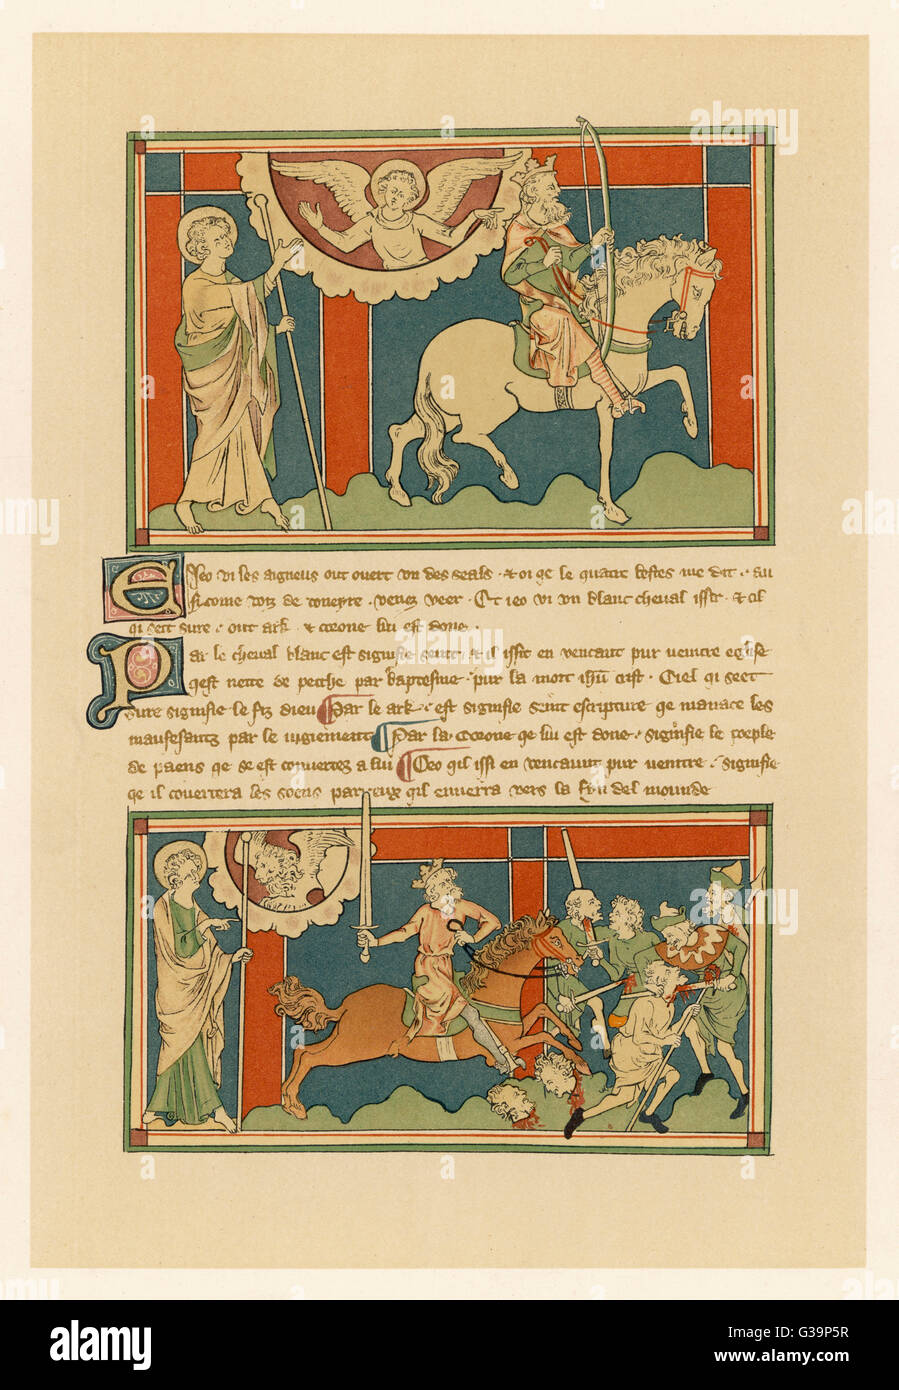 E Ieo vi les aigneus out overt un des seals · & oi qe le quatre bestes me dit ·
sicome toiz de toneyre · venez veer · Et ieo vi un blanc cheval issir · & cil
qi seit sure · out ark · & corone lui est done ·
Par le cheval blanc est signifie seint · & il issit en vencant pur veintre eglise
qest nette de pecche par baptesme · pur la mort ihu crist · Ciel qi seet
sure signifie le fiz dieu Par le ark · est signifie seint escripture qe manace les
maufesantz par le iugiement Par la corone qe lui est done · signifie le poeple
de paens qe se est convertez a lui Ceo qil issi en vencaunt pur veintre · signifie
qe il covertera les soens par ceux qil enverra vers la fyn del mounde
alamy
a
Image ID: G39P5R
www.alamy.com